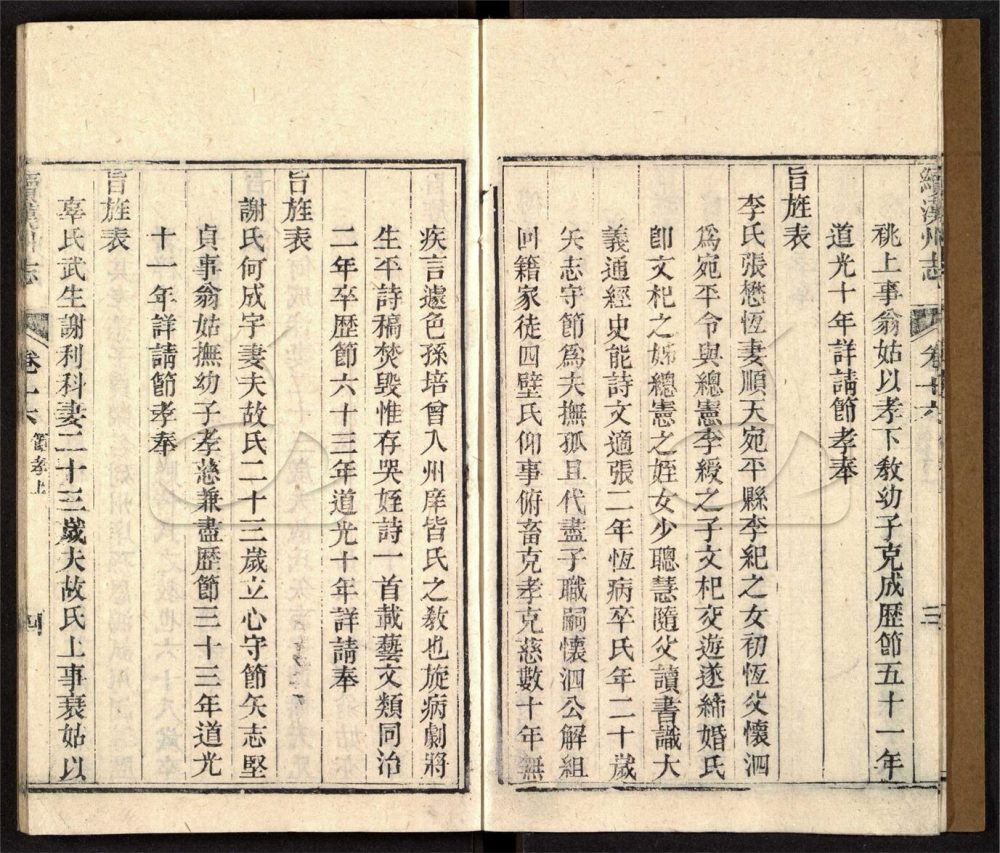 續漢州志 卷十六 三
祧上事翁姑以孝下教幼子克成歴節五十一年
道光十年詳請節孝奉
旨旌表
李氏張懋恆妻順天宛平縣李紀之女初恆父懷泗
爲宛平令與總憲李綬之子文杞交遊遂締婚氏
卽文杞之姊總憲之姪女少聰慧隨父讀書識大
義通經史能詩文適張二年恆病卒氏年二十歲
矢志守節爲夫撫孤且代盡子職嗣懷泗公解組
囘籍家徒四壁氏仰事俯畜克孝克慈數十年無
疾言遽色孫培曾入州庠皆氏之教也旋病劇將
生平詩稿焚毀惟存哭姪詩一首載藝文類同治
二年卒歴節六十三年道光十年詳請奉
旨旌表
謝氏何成字妻夫故氏二十三歲立心守節矢志堅
貞事翁姑撫幼子孝慈兼盡歴節三十三年道光
十一年詳請節孝奉
旨旌表
辜氏武生謝利科妻二十三歲夫故氏上事衰姑以
續漢州志 卷十六 節孝上 四